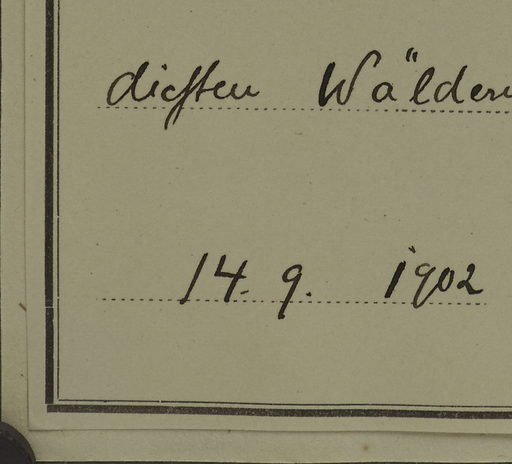 dichten Wäldern
14. 9. 1902